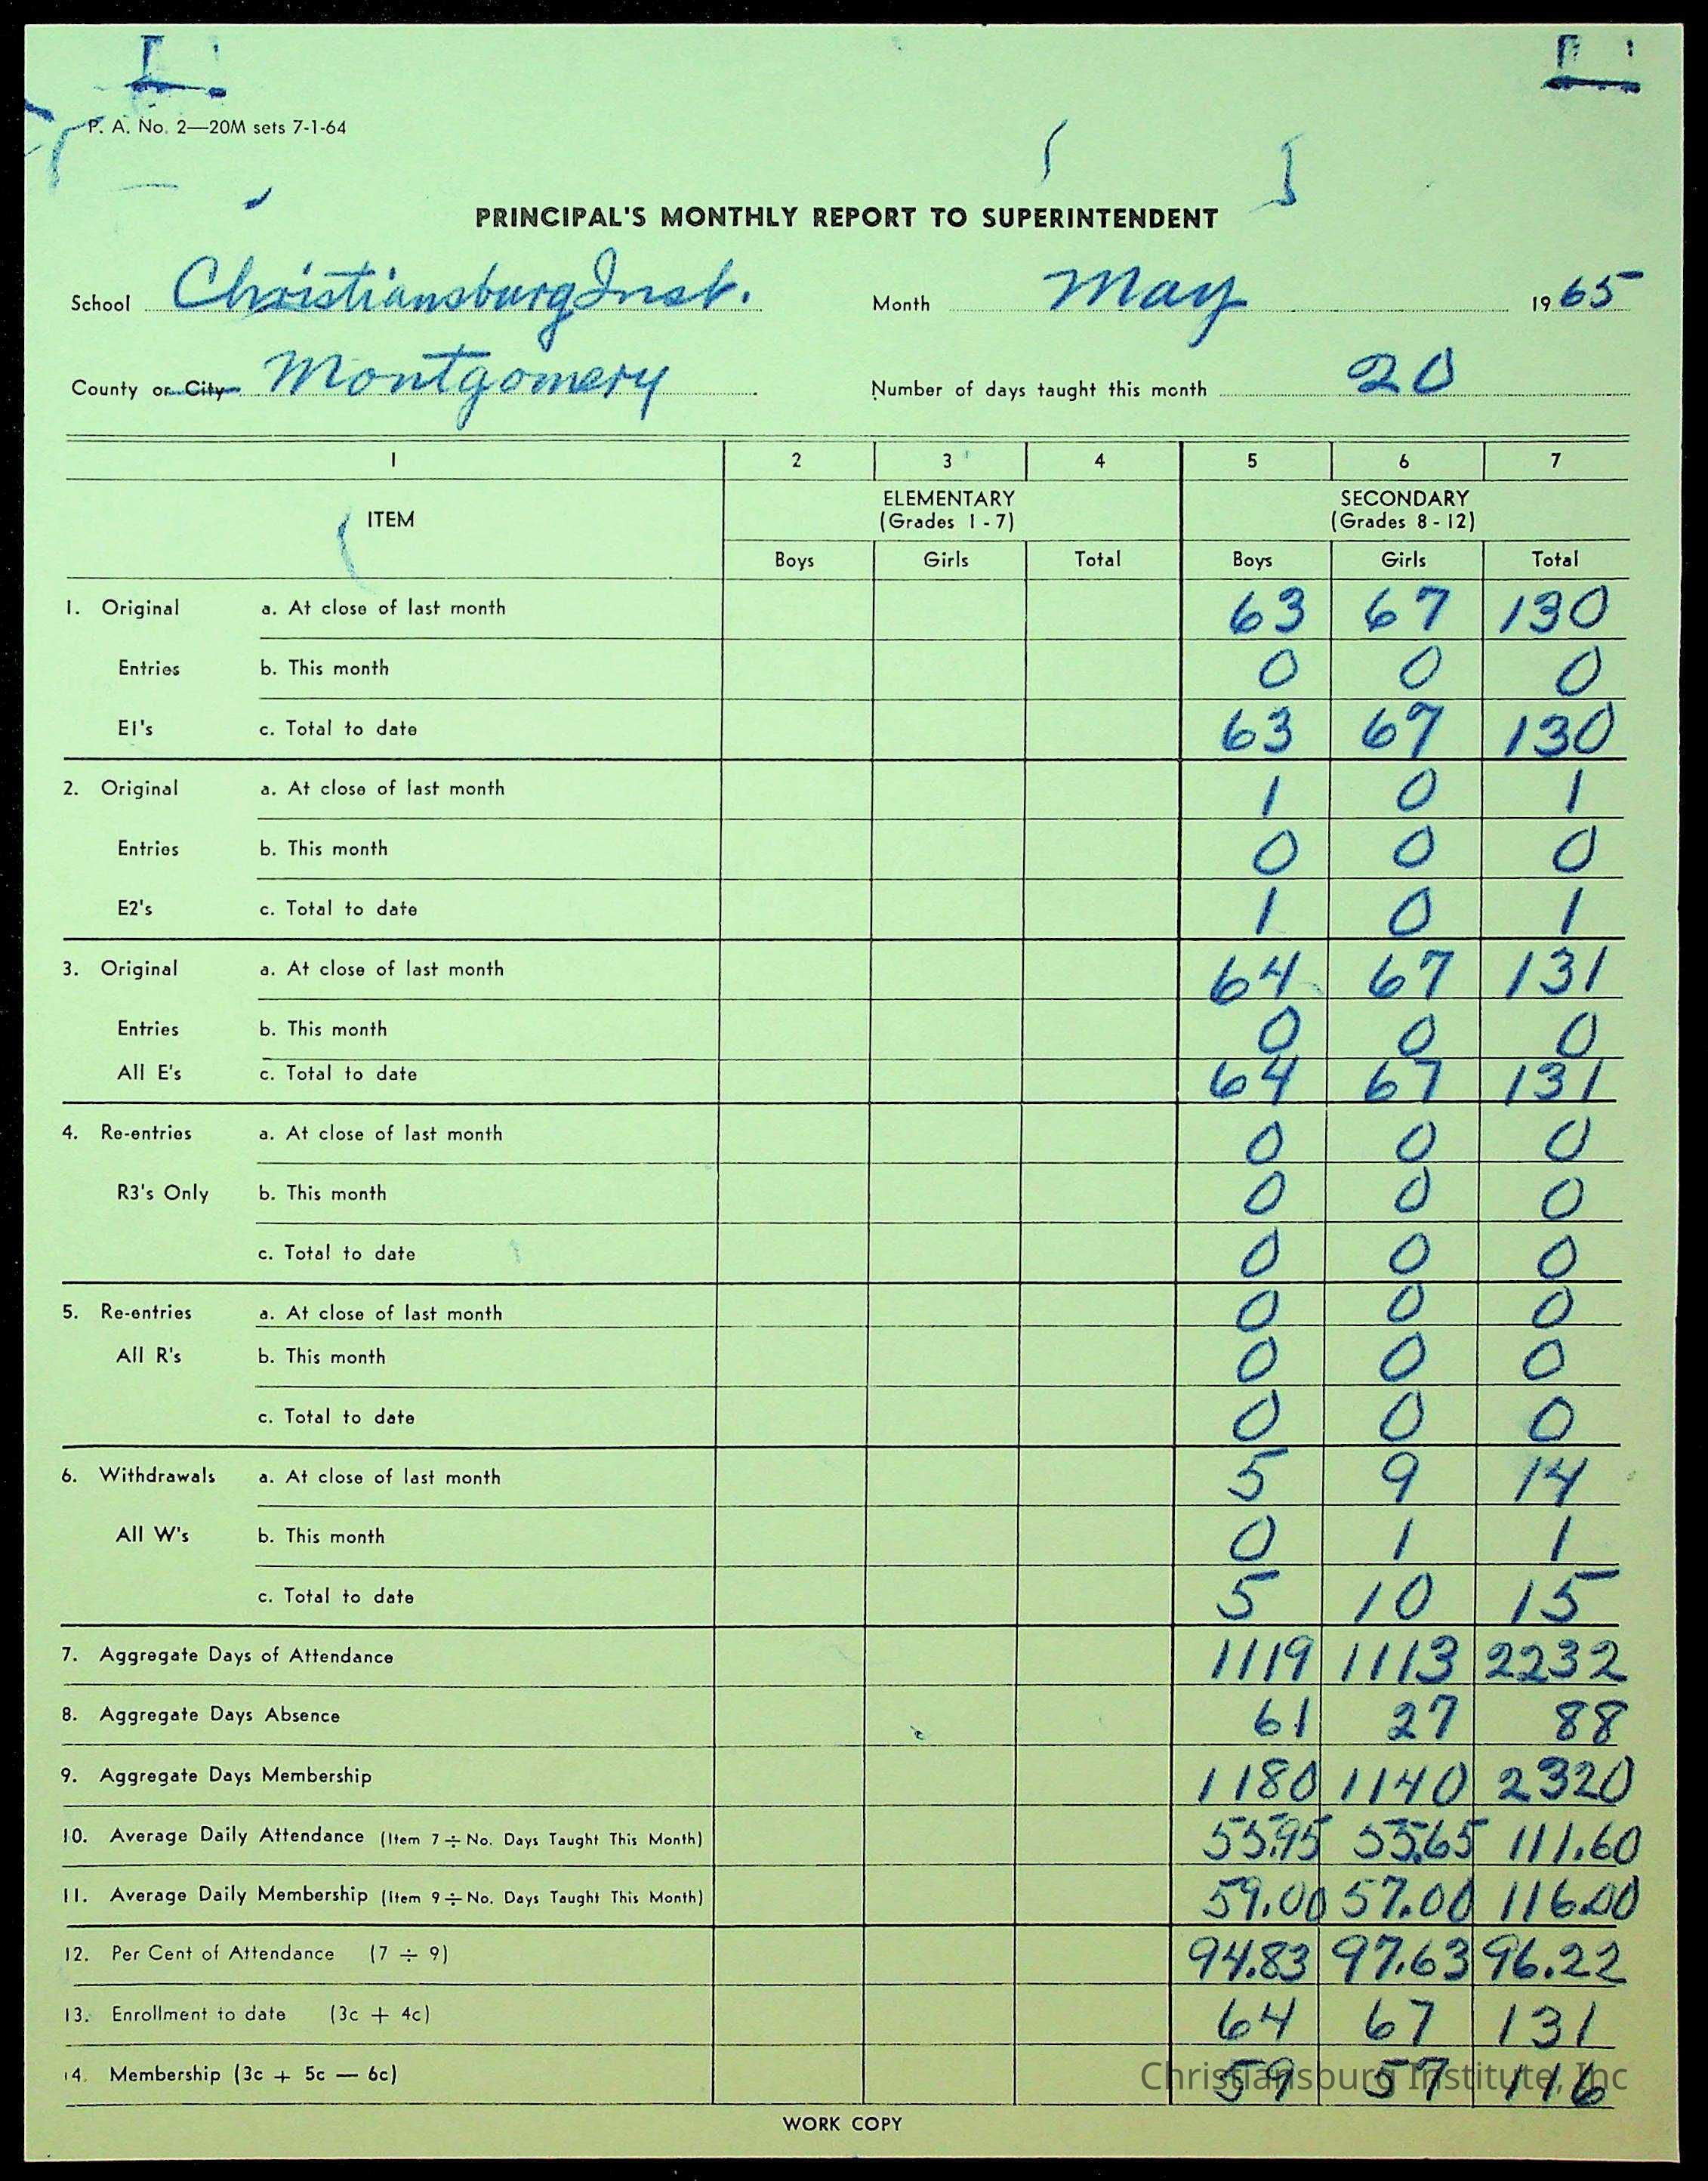 P. A. No. 2—20M sets 7-1-64
PRINCIPAL'S MONTHLY REPORT TO SUPERINTENDENT
School Christiansburg Inst. Month May 1965
County or City Montgomery Number of days taught this month 20
1 2 3 4 5 6 7
ITEM ELEMENTARY (Grades 1 - 7) SECONDARY (Grades 8 - 12)
Boys Girls Total Boys Girls Total
1. Original a. At close of last month 63 67 130
Entries b. This month 0 0 0
E1's c. Total to date 63 67 130
2. Original a. At close of last month 1 0 1
Entries b. This month 0 0 0
E2's c. Total to date 1 0 1
3. Original a. At close of last month 64 67 131
Entries b. This month 0 0 0
All E's c. Total to date 64 67 131
4. Re-entries a. At close of last month 0 0 0
R3's Only b. This month 0 0 0
c. Total to date 0 0 0
5. Re-entries a. At close of last month 0 0 0
All R's b. This month 0 0 0
c. Total to date 0 0 0
6. Withdrawals a. At close of last month 5 9 14
All W's b. This month 0 1 1
c. Total to date 5 10 15
7. Aggregate Days of Attendance 1119 1113 2232
8. Aggregate Days Absence 61 27 88
9. Aggregate Days Membership 1180 1140 2320
10. Average Daily Attendance (Item 7 ÷ No. Days Taught This Month) 55.95 55.65 111.60
11. Average Daily Membership (Item 9 ÷ No. Days Taught This Month) 59.00 57.00 116.00
12. Per Cent of Attendance (7 ÷ 9) 94.83 97.63 96.22
13. Enrollment to date (3c + 4c) 64 67 131
14. Membership (3c + 5c — 6c) 59 57 116
Christiansburg Institute, Inc
WORK COPY